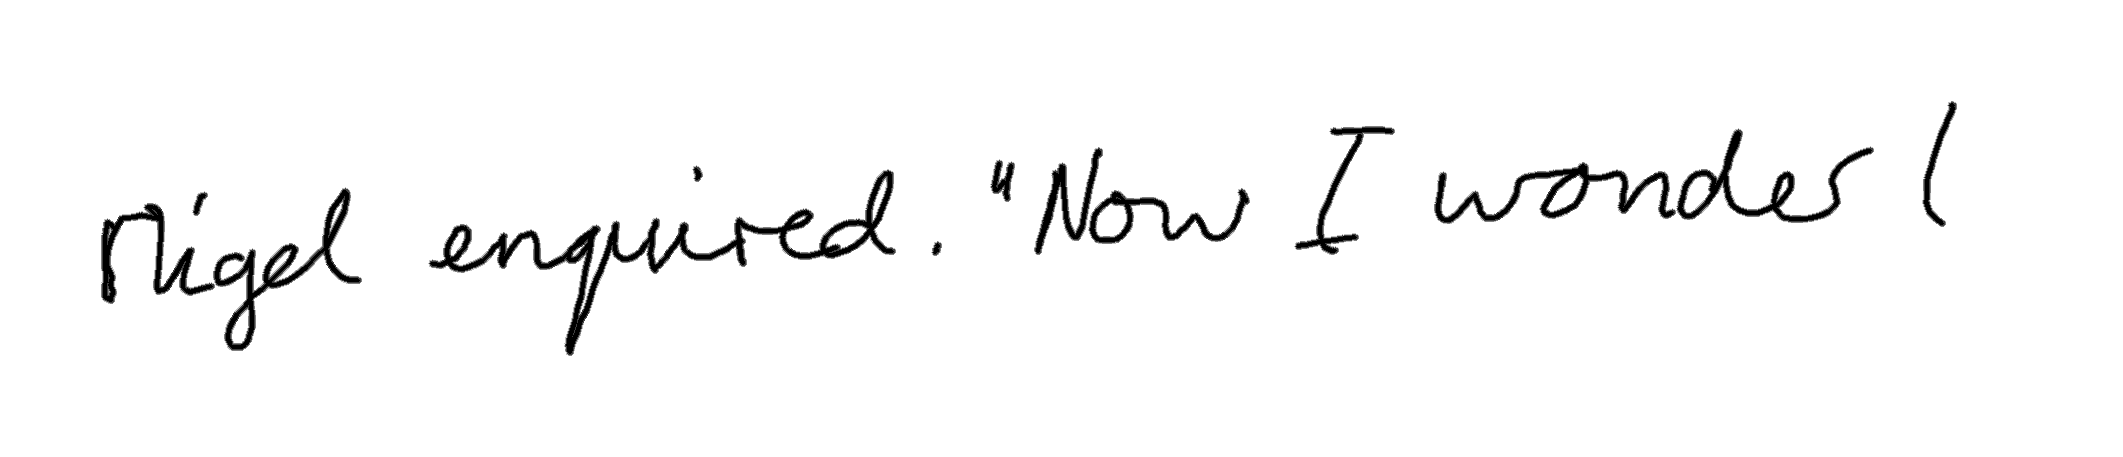 Nigel enquired. "Now I wonder !